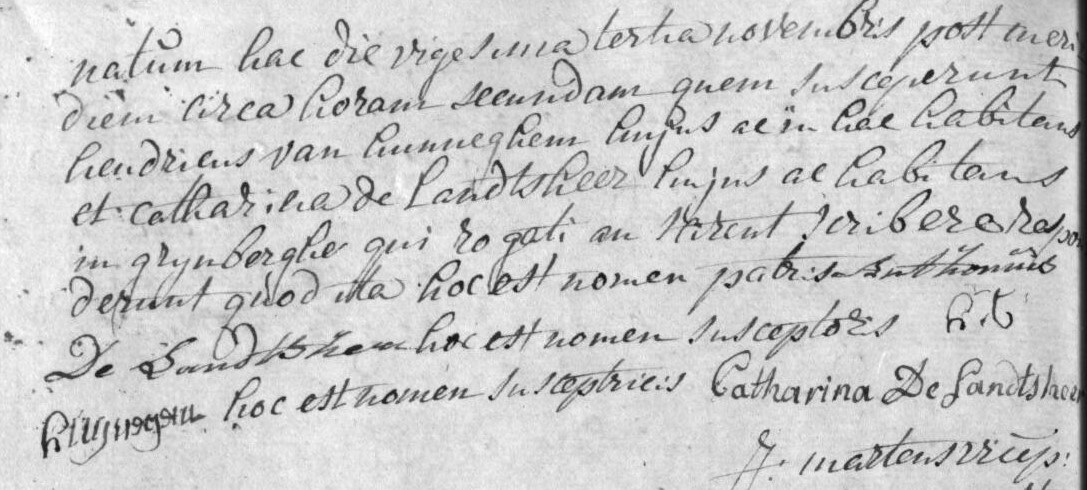 natum hac die vigesima tertia novembris post meri
diem circa horam secundam quem susceperunt
hendricus van hunneghem hujus ac in hac habitans
et catharina de Landtsheer hujus ac habitans
in grynberghe qui rogati an scirent scribere respo
derunt quod ita hoc est nomen patris Anthonius
De Landtsheer hoc est nomen susceptoris h.v.
hunnegem hoc est nomen susceptricis Catharina De Landtsheer
J. martens vicep: